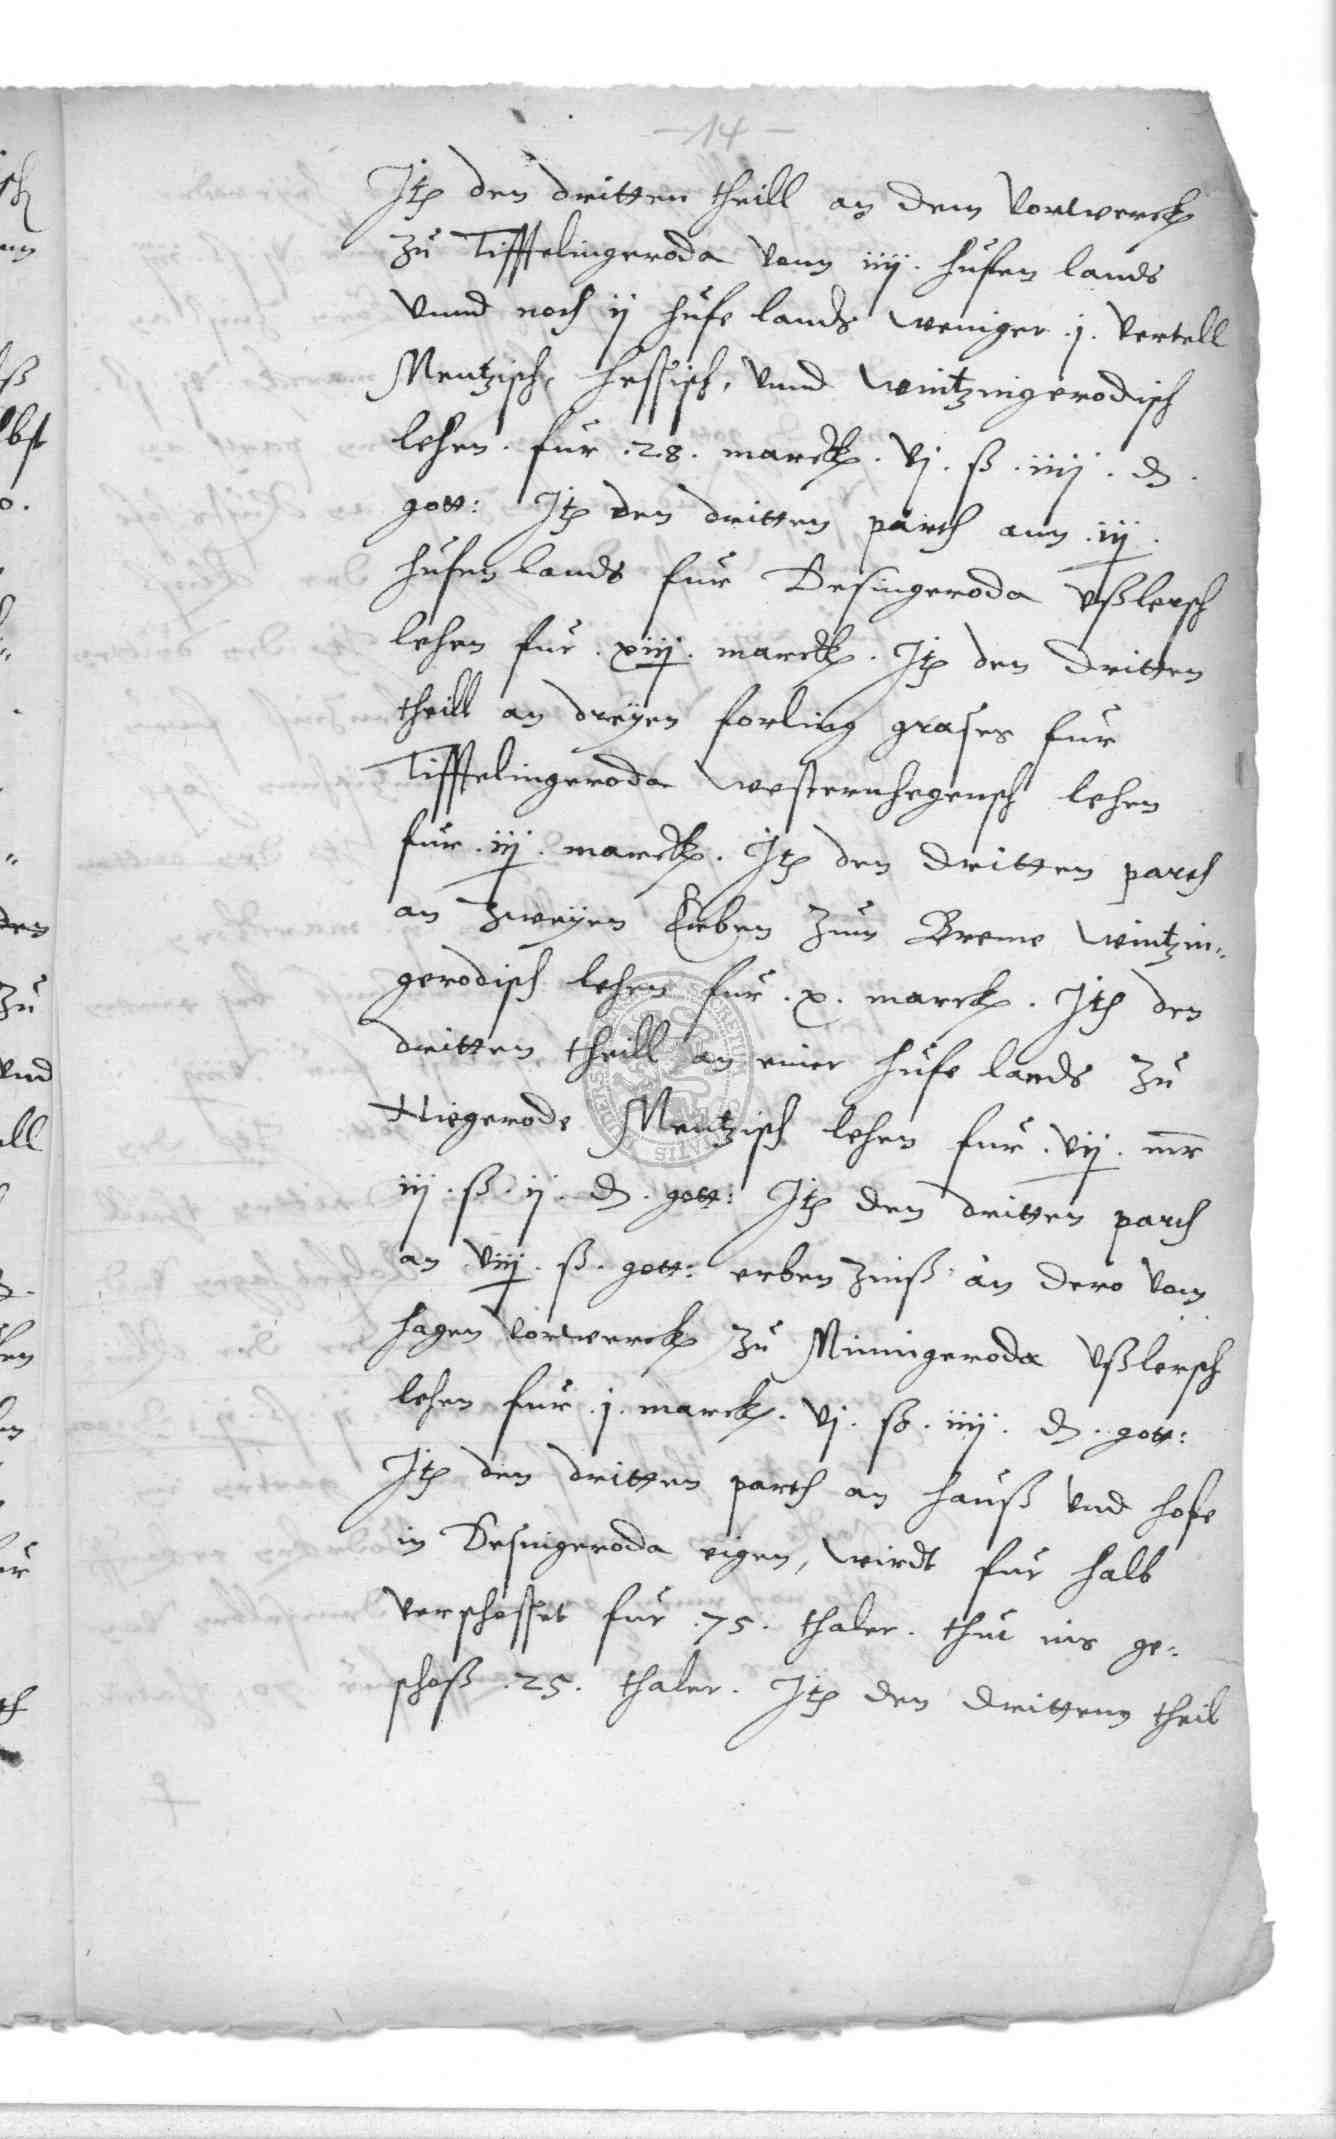 -14-
Jtem den dritten theill an dem vorwerck
zu Tifftelingeroda vonn iiij. hufen lands
vnnd noch ij hufe lands weniger .j. vertell
Mentzisch, hessisch, vnnd wintzingerodisch
lehen. fur .28. marck. vj. ß. iiij. d.
gott: Jtem den dritten parth ann .iij.
hufen lands fur Desingeroda vßlersch
lehen fur .xiij. marck. Jtem den dritten
theill an dreyen forling grases fur
Tifftelingeroda westernhagensch lehen
fur .iij. marck. Jtem den dritten parth
an zweyen zum Breme wintzin-
gerodisch lehen fur .x. marck. Jtem den
dritten theill an einer hufe lands zu
Hiegerode Mentzisch lehen fur .vij. mr
iij. ß. ij. d. gott: Jtem den dritten parth
an viij. ß. gott: erben zinß an dero vom
hagen vorwerck zu Minnigeroda vßlersch
lehen fur .j. marck. vj. ß. iiij. d. gott:
Jtem den dritten parth an hauß vnd hofe
in Desingeroda eigen, wirdt fur halb
verschosset fur .75. thaler. thut ins ge-
schoß .25. thaler. Jtem den drittenn theil